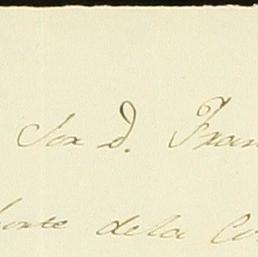 Sor D. Fran
de la Co